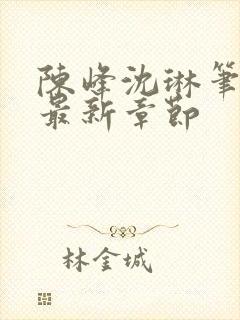 陳峰沈琳筆
最新章節
林金城